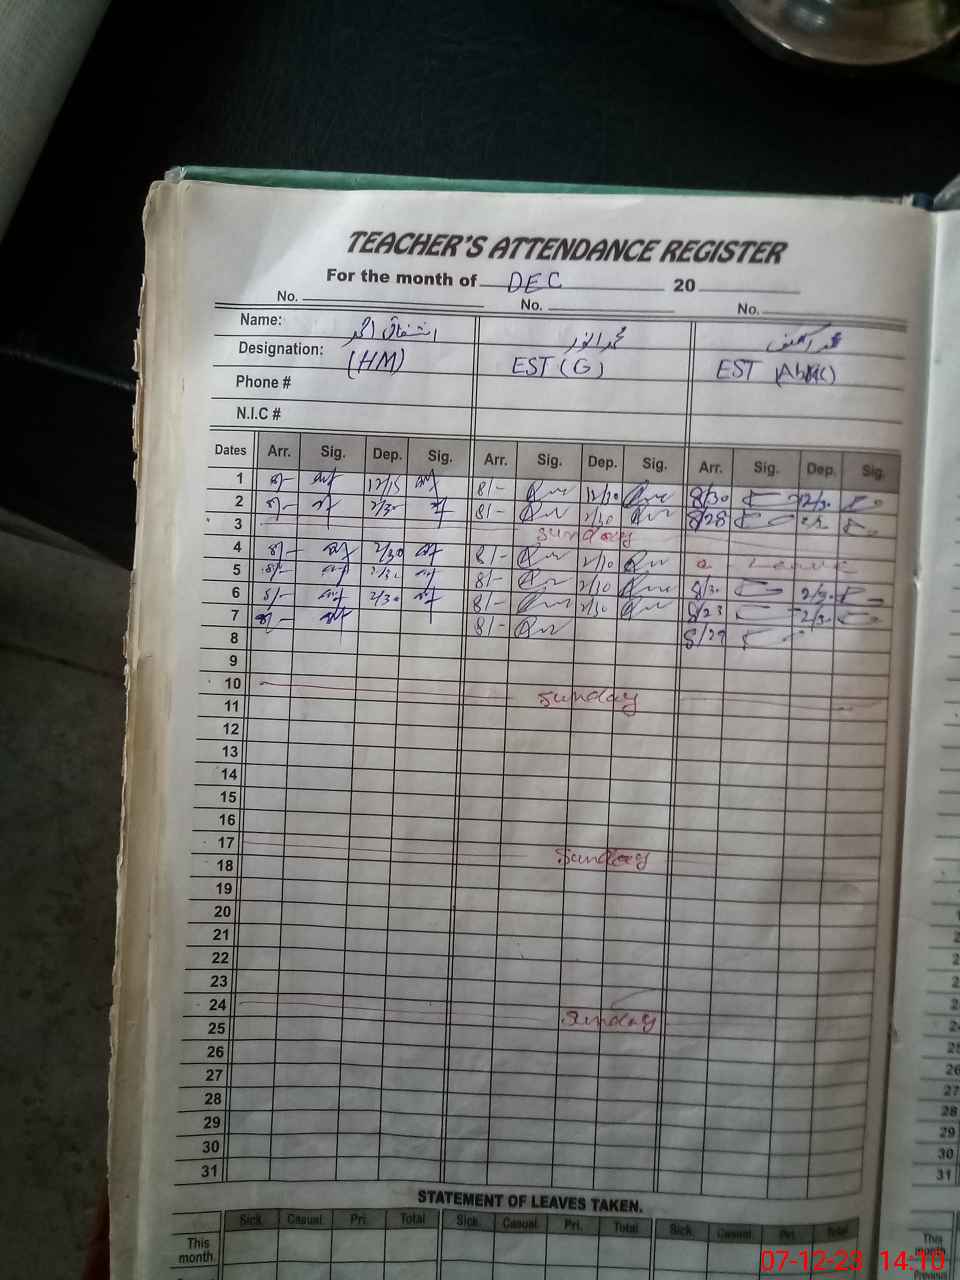 TEACHER'S ATTENDANCE REGISTER
For the month of DEC 20
No. No. No.
Name: اشفاق احمد محمد انور محمد
Designation: (HM) EST (G) EST
Phone #
N.I.C #
Dates Arr. Sig. Dep. Sig. Arr. Sig. Dep. Sig. Arr. Sig. Dep. Sig.
1 8/- 12/15 8/- 12/10 8/30 12/30
2 8/- 2/30 8/- 2/30 8/28
3 Sunday
4 8/- 2/30 8/- 2/10 Leave
5 8/- 8/- 2/10 8/30 2/30
6 8/- 2/30 8/- 2/30 8/23 2/30
7 8/- 8/- 8/29
8
9
10 Sunday
11
12
13
14
15
16
17 Sunday
18
19
20
21
22
23
24 Sunday
25
26
27
28
29
30
31
STATEMENT OF LEAVES TAKEN.
Sick. Casual. Pri. Total Sick. Casual. Pri. Total Sick. Casual. Pri. Total
This month
This month
Previous
25
26
27
28
29
30
31
07-12-23 14:10